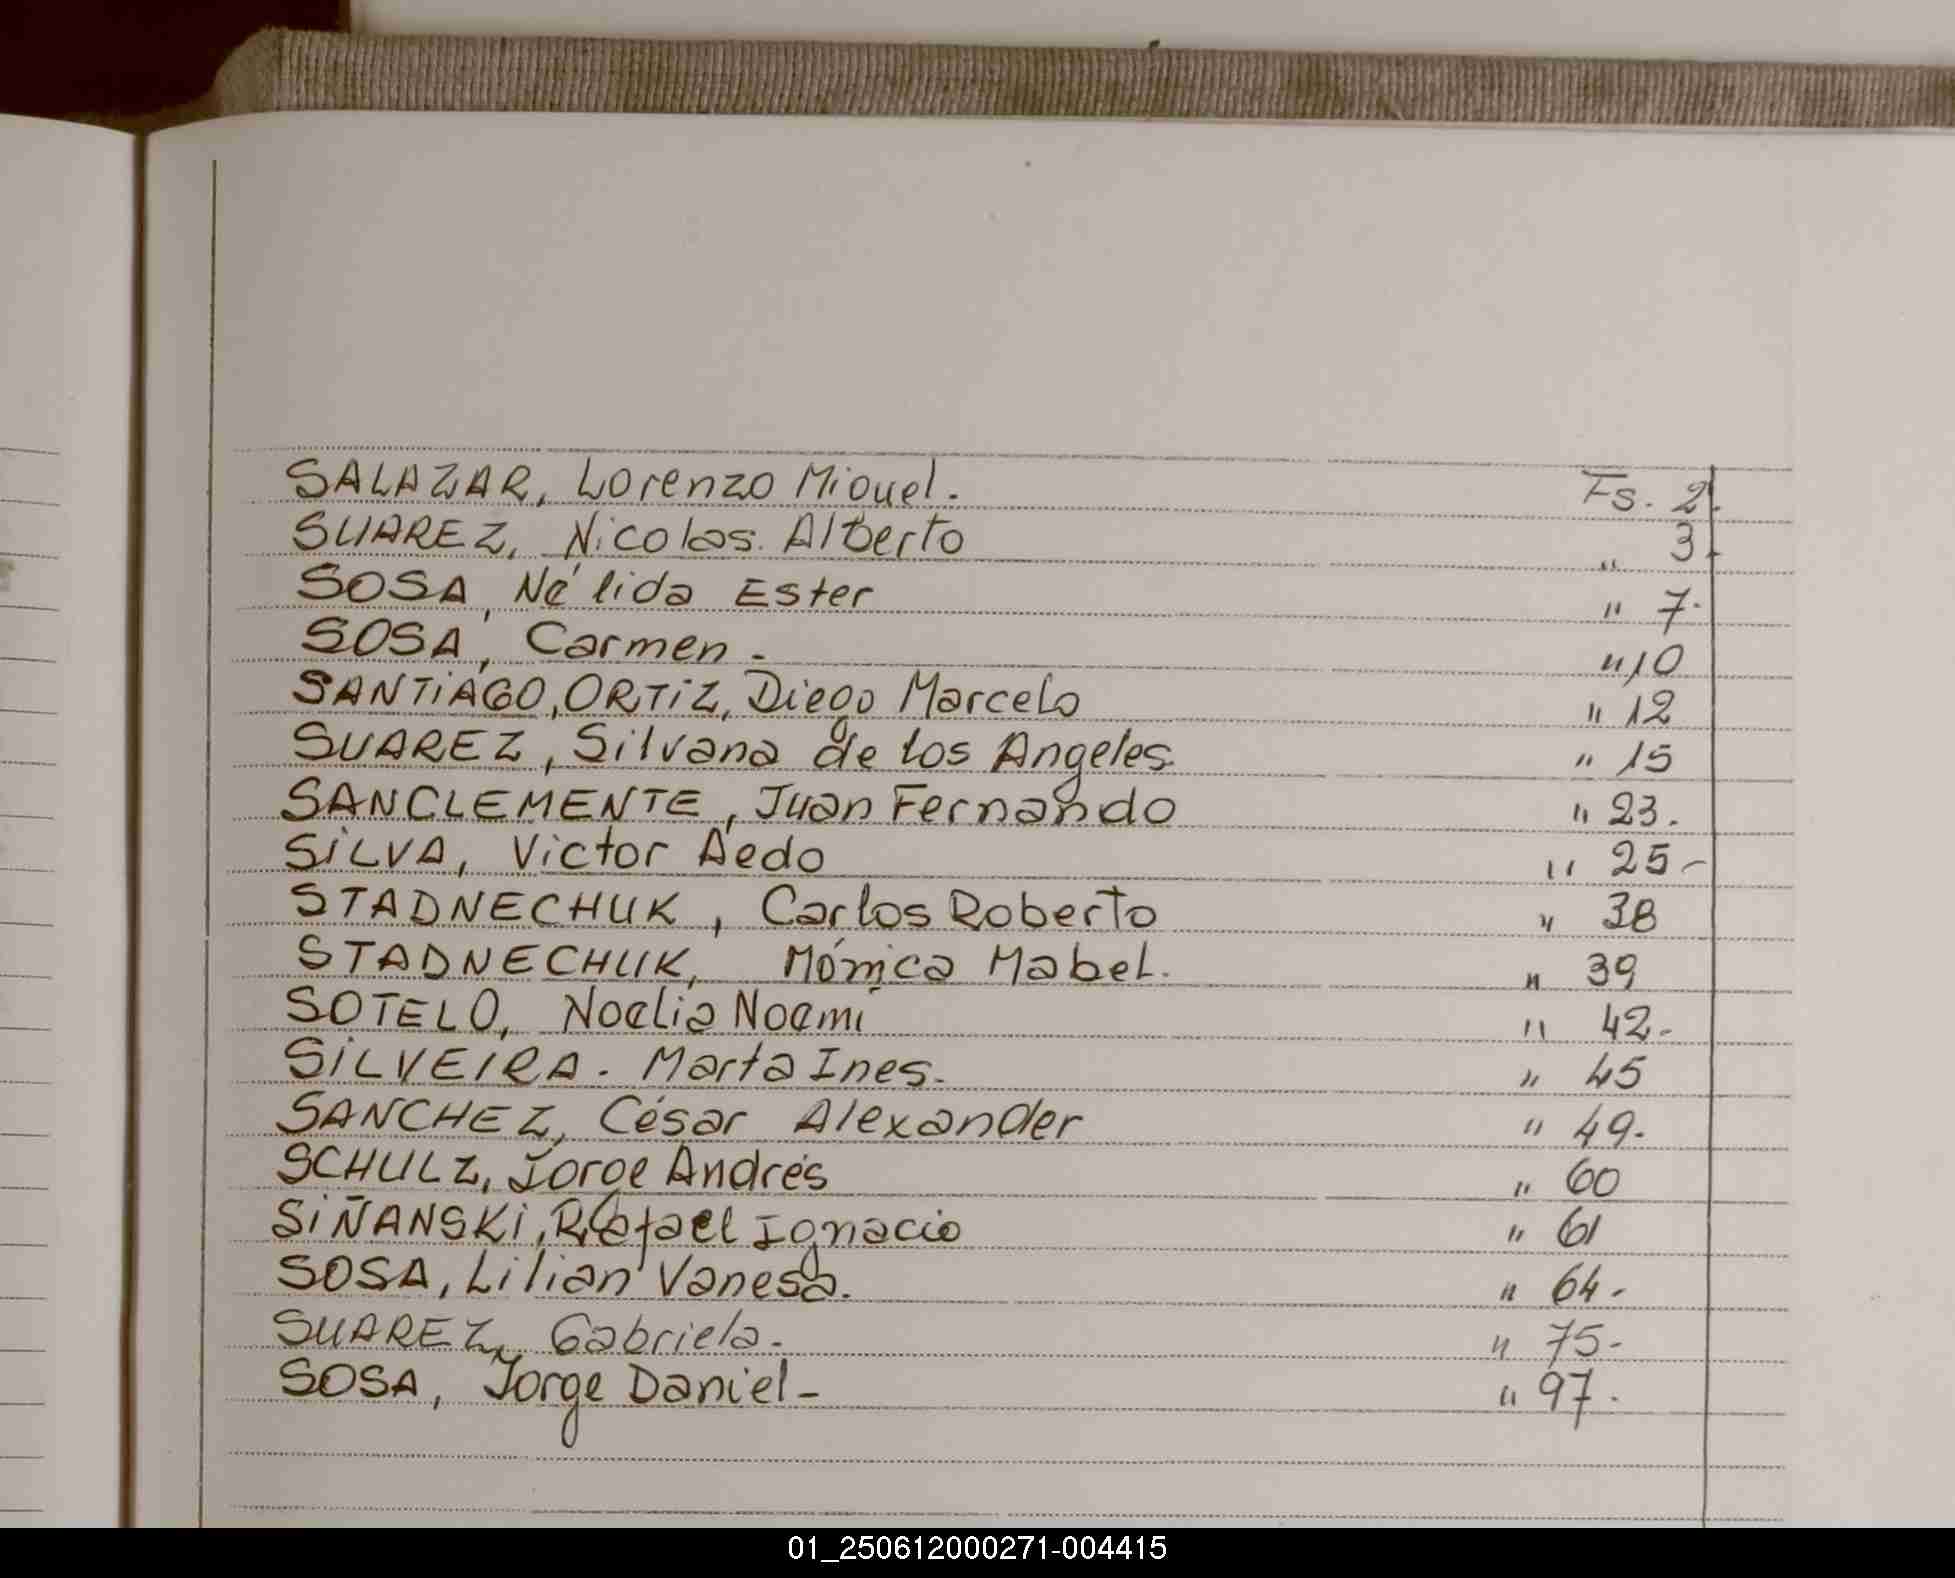 SALAZAR, Lorenzo Miguel. Fs. 2.
SUAREZ, Nicolas. Alberto " 3.
SOSA, Nélida Ester " 7.
SOSA, Carmen. " 10
SANTiAGO, ORTiZ, Diego Marcelo " 12
SUAREZ, Silvana de los Angeles. " 15
SANCLEMENTE, Juan Fernando " 23.
SiLVA, Victor Aedo " 25-
STADNECHUK, Carlos Roberto " 38
STADNECHUK, Mónica Mabel. " 39
SOTELO, Noelia Noemí " 42-
SiLVEIRA. Marta Ines. " 45
SANCHEZ, César Alexander " 49.
SCHULZ, Jorge Andrés " 60
SiÑANSKi, Rafael Ignacio " 61
SOSA, Lilian Vanesa. " 64.
SUAREZ, Gabriela. " 75-
SOSA, Jorge Daniel- " 97.
01_250612000271-004415